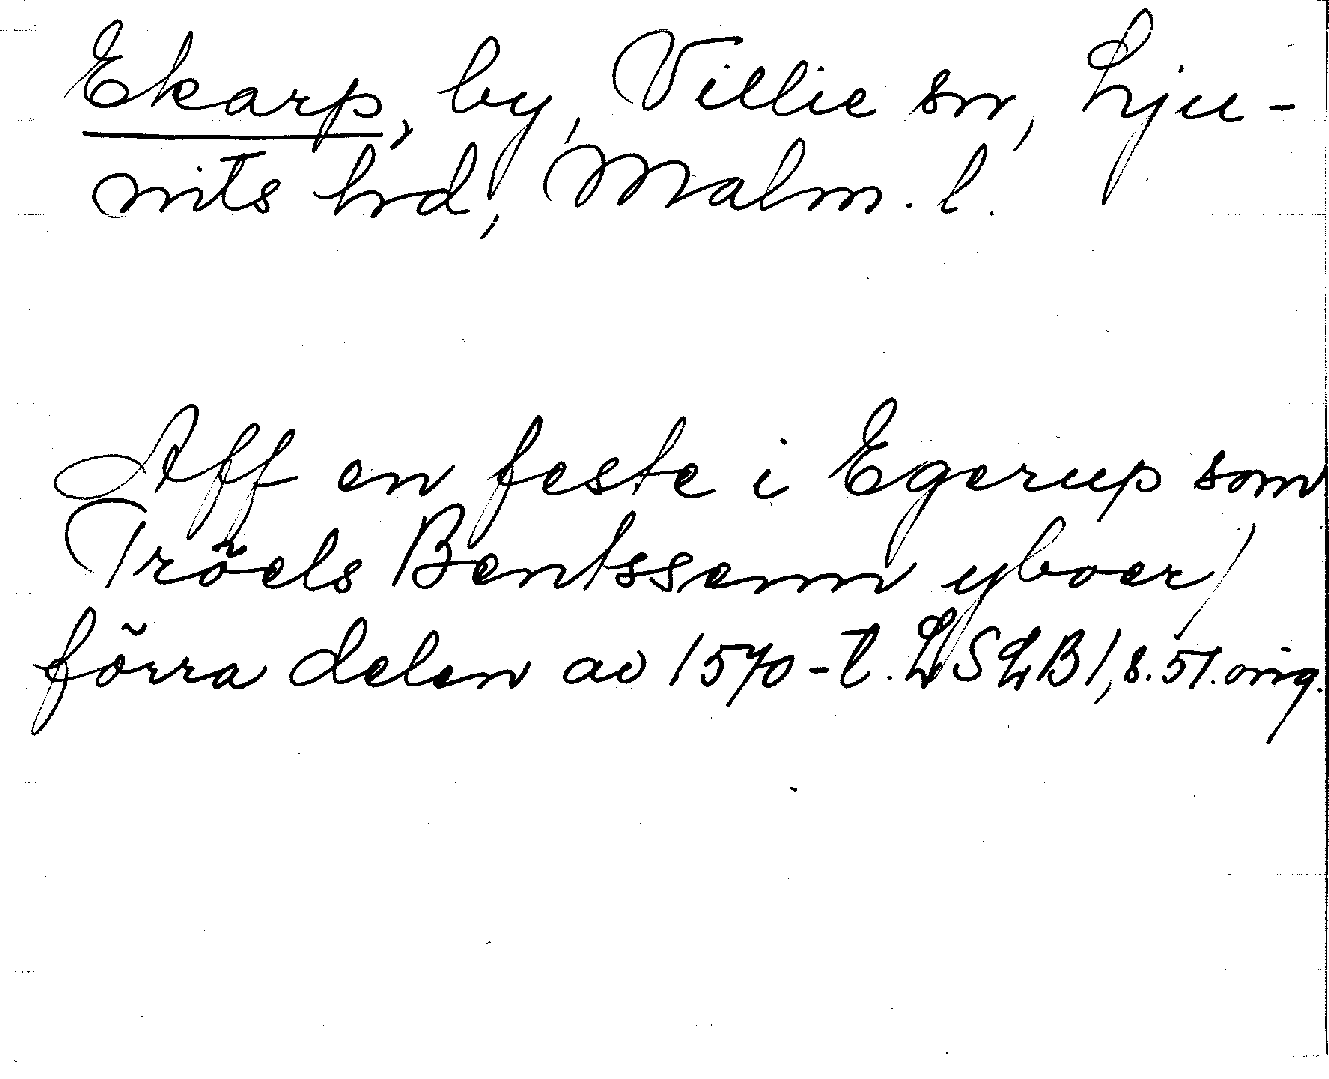 Ekarp, by, Villie sn, Lju-
nits hrd, Malm. l.
Aff en feste i Egerup som
Tröels Bentssenn yboer/
förra delen av 1570-t. LSLB1, s. 51. orig.